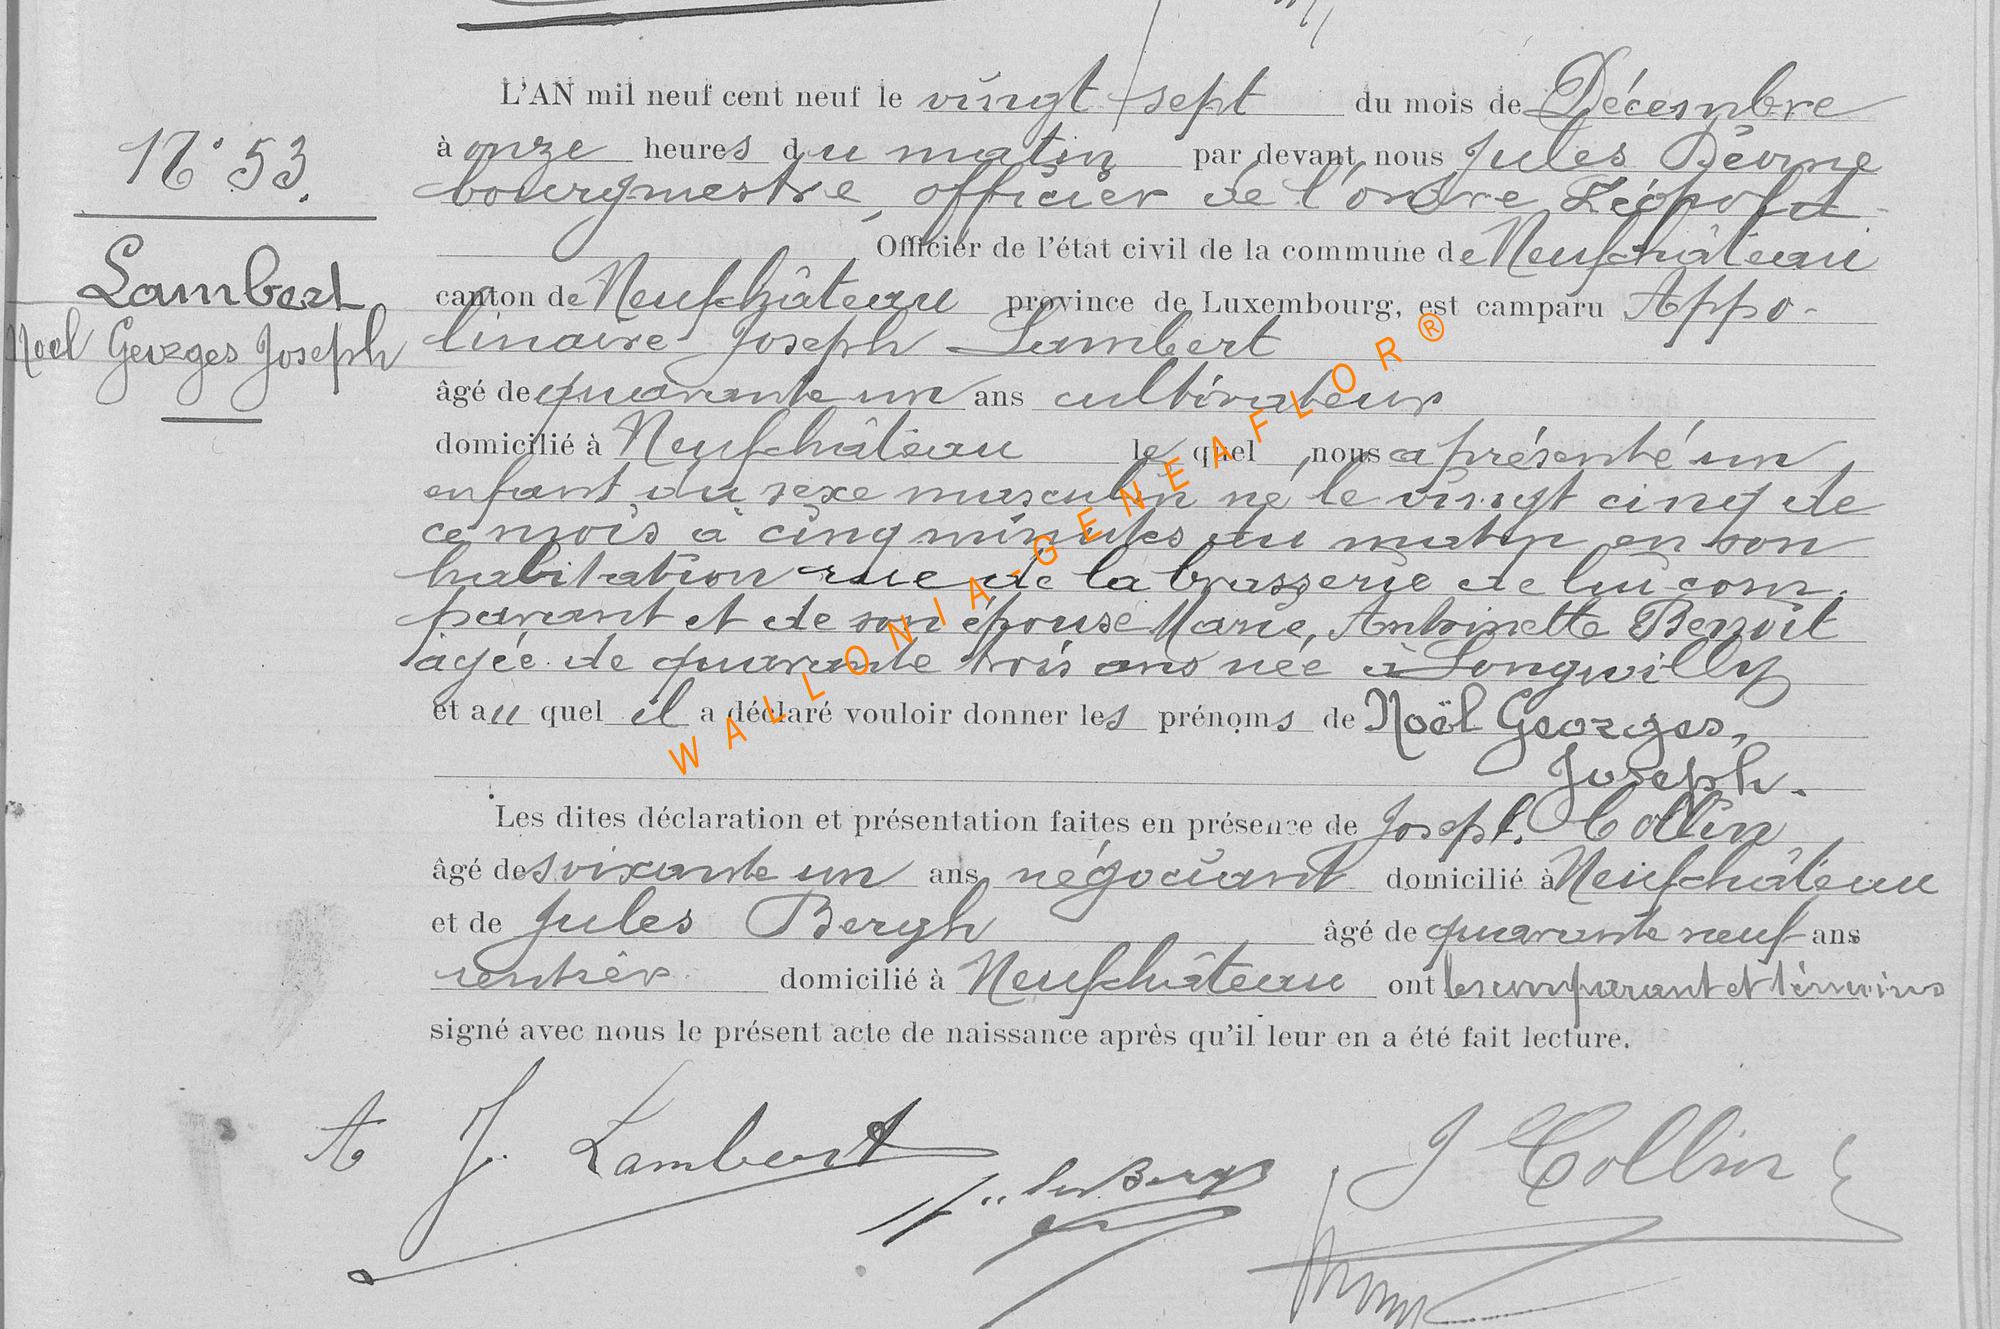 L'AN mil neuf cent neuf le vingt sept du mois de Décembre
N° 53.
à onze heures du matin par devant nous Jules
bourgmestre, officier de l'ordre Léopold
Officier de l'état civil de la commune de Neufchâteau
Lambert
Noël Georges Joseph
canton de Neufchâteau province de Luxembourg, est camparu Appo-
linaire Joseph Lambert
âgé de quarante un ans cultivateur
domicilié à Neufchâteau le quel nous a présenté un
enfant du sexe masculin né le vingt cinq de
ce mois à cinq minutes du matin en son
habitation rue de la brasserie de lui com
parant et de son épouse Marie, Antoinette Benoît
agée de quarante trois ans née à Longwilly
et au quel il a déclaré vouloir donner les prénoms de Noël Georges,
Joseph.
Les dites déclaration et présentation faites en présence de Joseph Collin
âgé de soixante un ans négociant domicilié à Neufchâteau
et de Jules Bergh âgé de quarante neuf ans
rentier domicilié à Neufchâteau ont les comparant et témoins
signé avec nous le présent acte de naissance après qu'il leur en a été fait lecture.
A J. Lambert
J Collin
WALLONIA-GENEAFLOR®